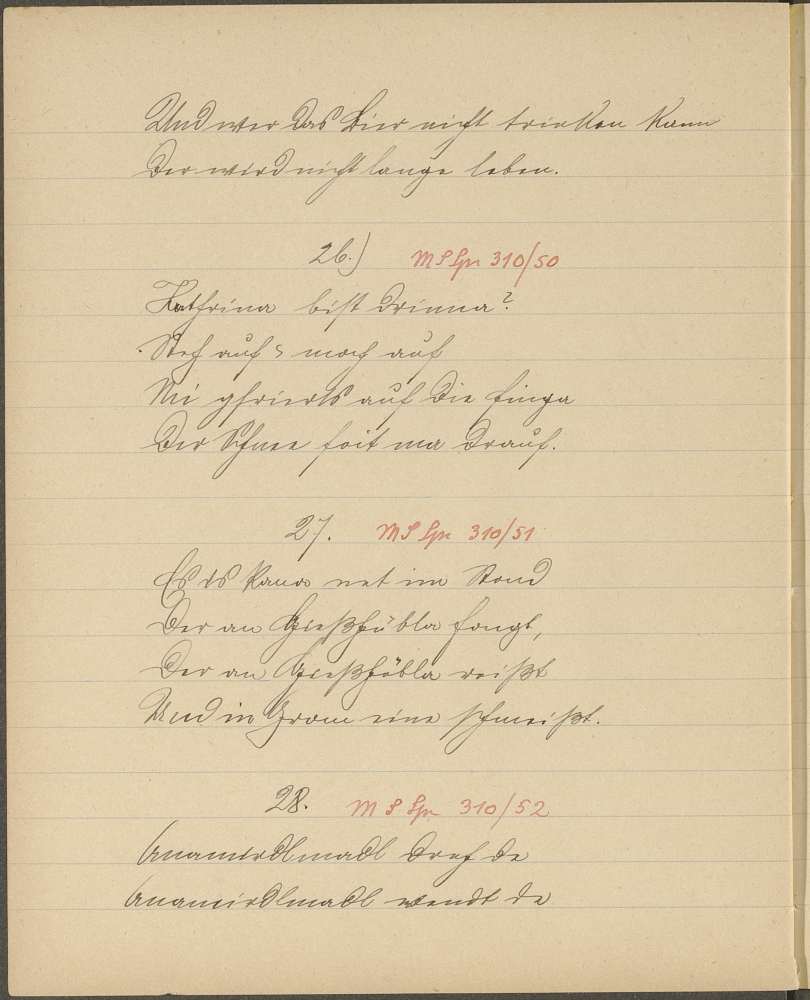 Und wer das Bier nicht trinken kann
Der wird nicht lange leben.
26.) MS Spr 310/50
Kathrina bist drinna?
Steh auf & moch auf
Mi gfrierts auf die Finga
Der Schnee foit ma drauf.
27. MS Spr 310/51
Es is kana net im Stand
Der an Gießhübla fongt,
Der an Gießhübla reißt
Und in Grom eine schmeißt.
28. MS Spr 310/52
drah de
wendt de